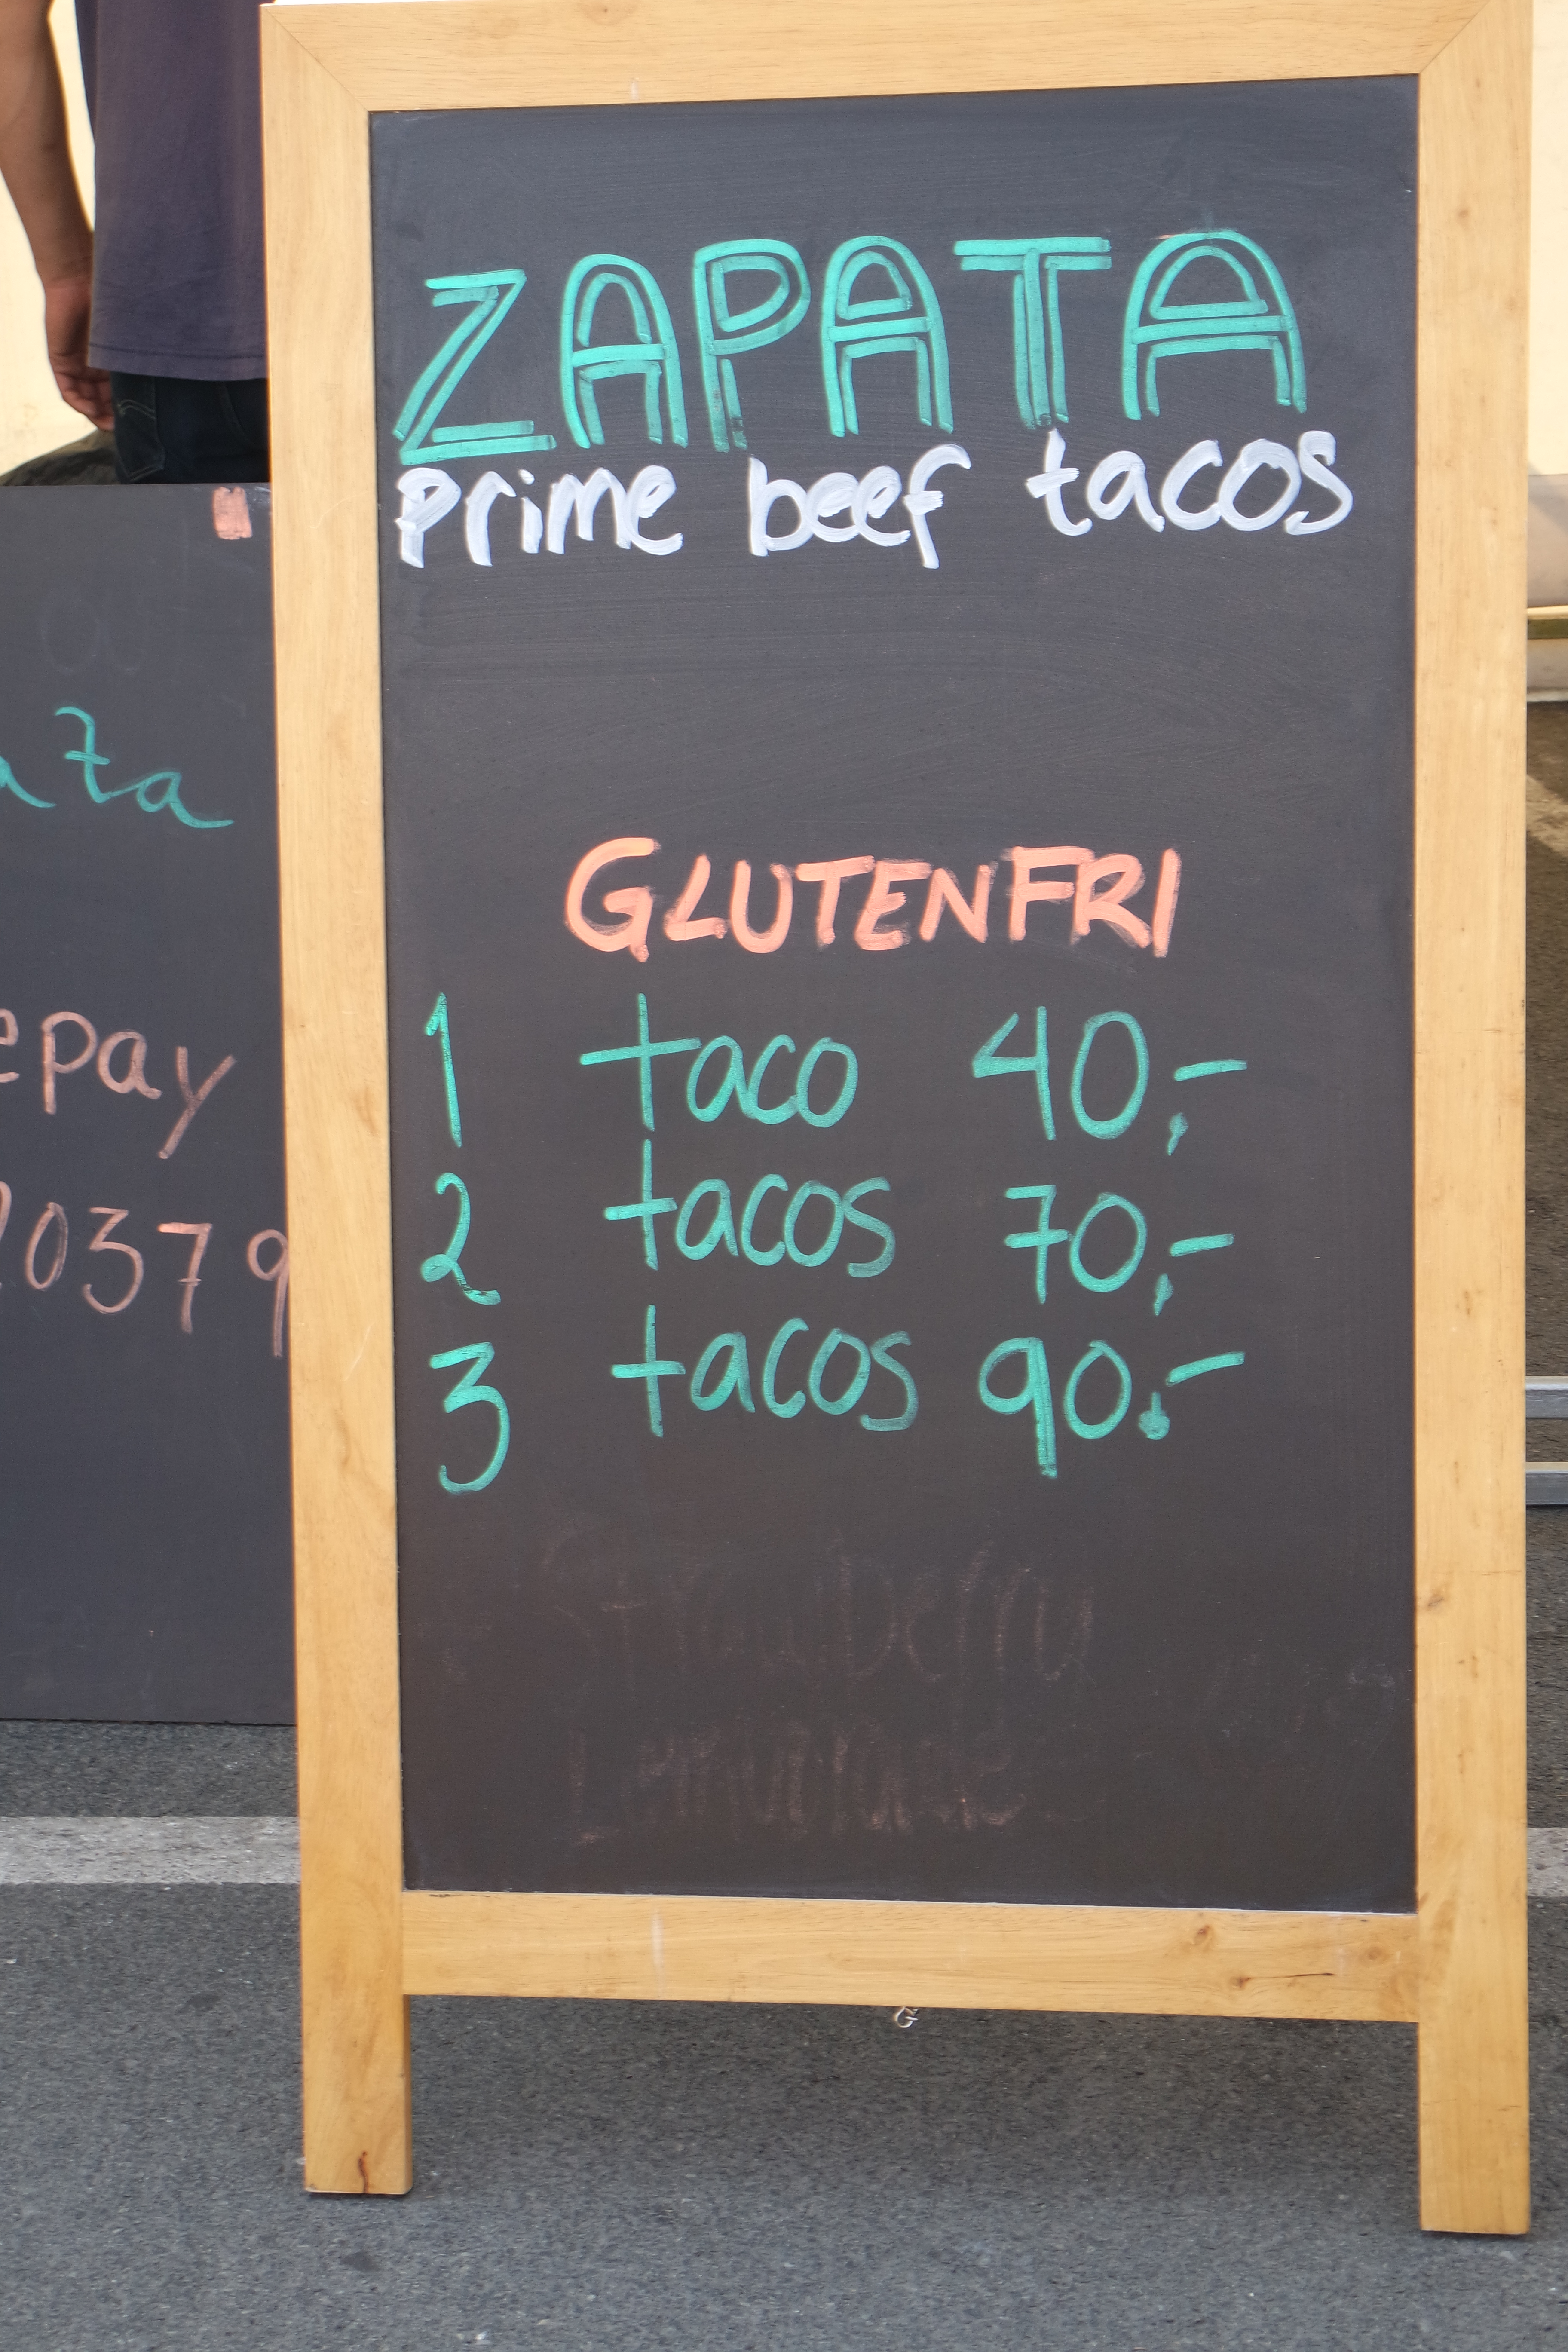 ZAPATA
prime beef tacos
GLUTENFRI
1 taco 40,-
2 tacos 70,-
3 tacos 90.-
Strawberry
Lemonade
ata
epay
20379